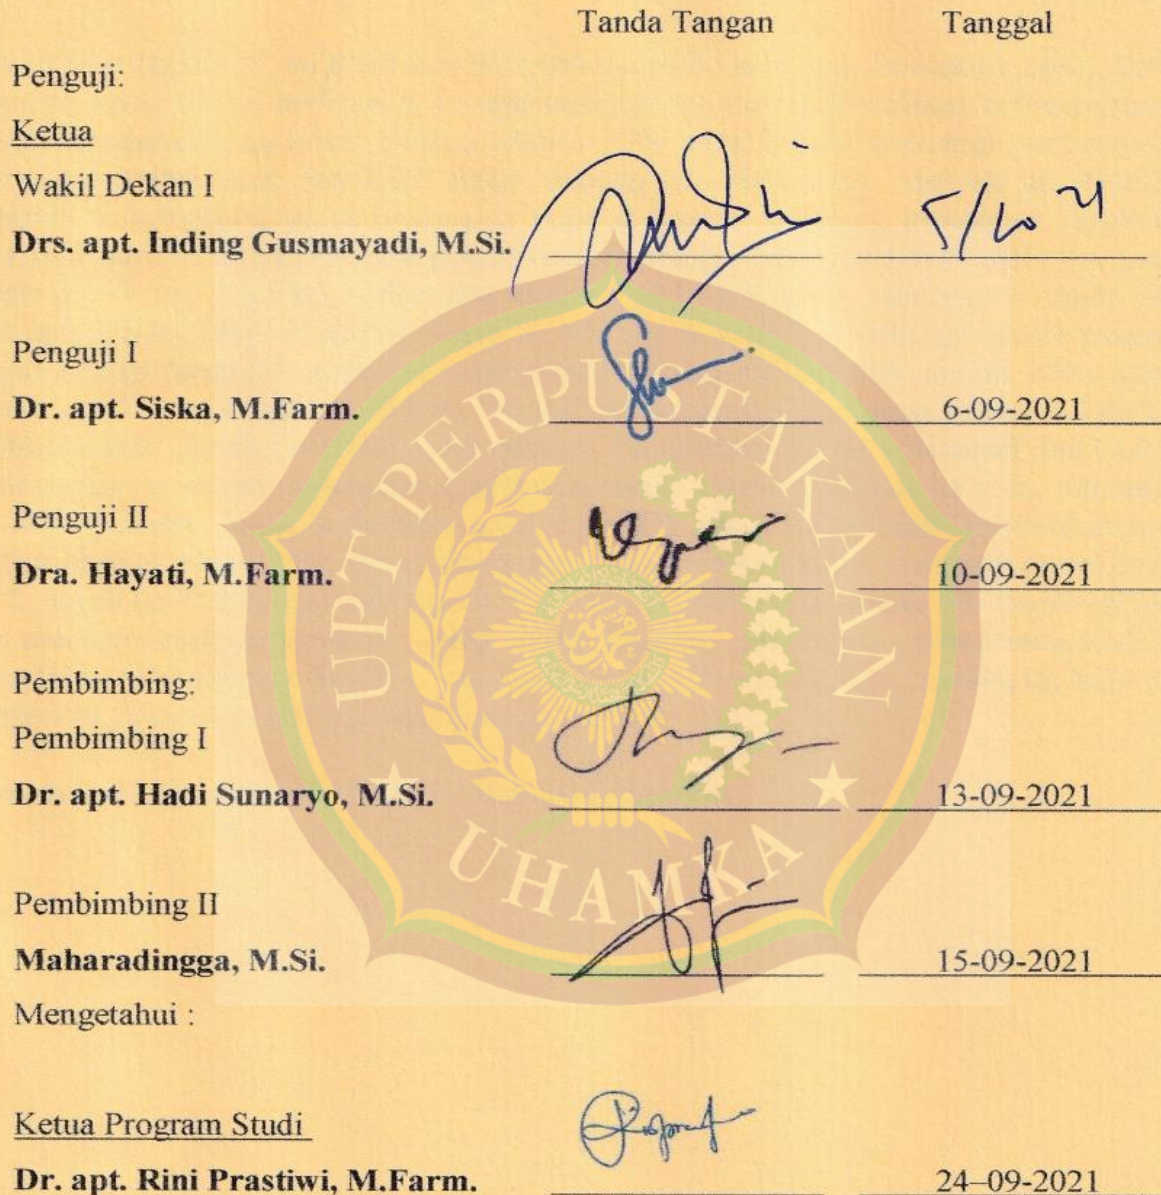 Tanda Tangan Tanggal
Penguji:
Ketua
Wakil Dekan I
Drs. apt. Inding Gusmayadi, M.Si. 5/10 21
Penguji I
Dr. apt. Siska, M.Farm. 6-09-2021
Penguji II
Dra. Hayati, M.Farm. 10-09-2021
Pembimbing:
Pembimbing I
Dr. apt. Hadi Sunaryo, M.Si. 13-09-2021
Pembimbing II
Maharadingga, M.Si. 15-09-2021
Mengetahui :
Ketua Program Studi
Dr. apt. Rini Prastiwi, M.Farm. 24–09-2021
UPT PERPUSTAKAAN
UHAMKA